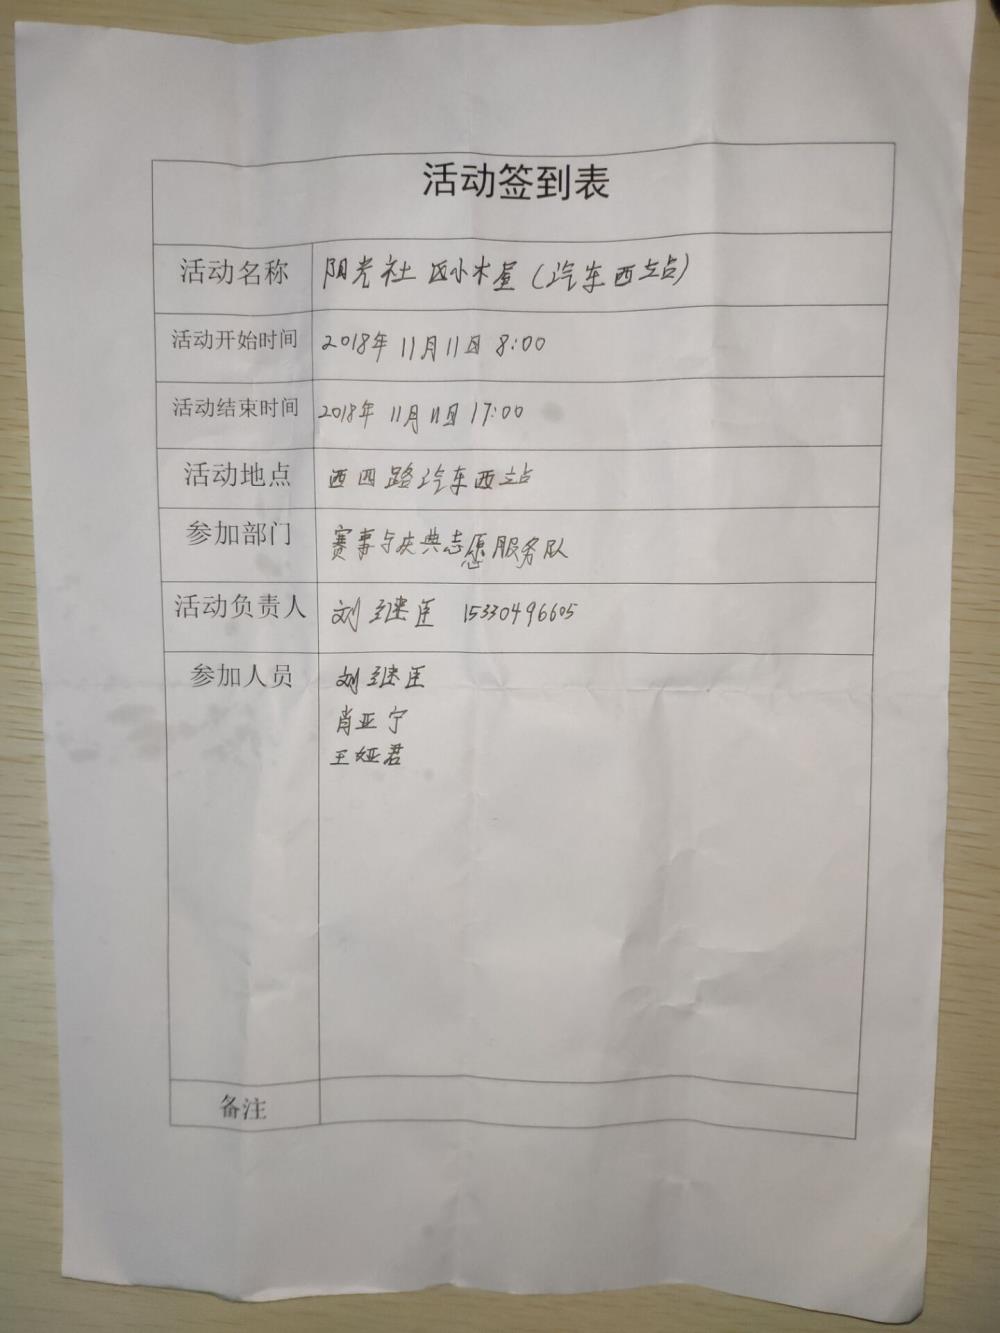 活动签到表
活动名称 阳光社区小木屋（汽车西站）
活动开始时间 2018年11月11日 8:00
活动结束时间 2018年11月11日17:00
活动地点 西四路汽车西站
参加部门 赛事与庆典志愿服务队
活动负责人 刘继匡 15330496605
参加人员 刘继匡
肖亚宁
王娅君
备注